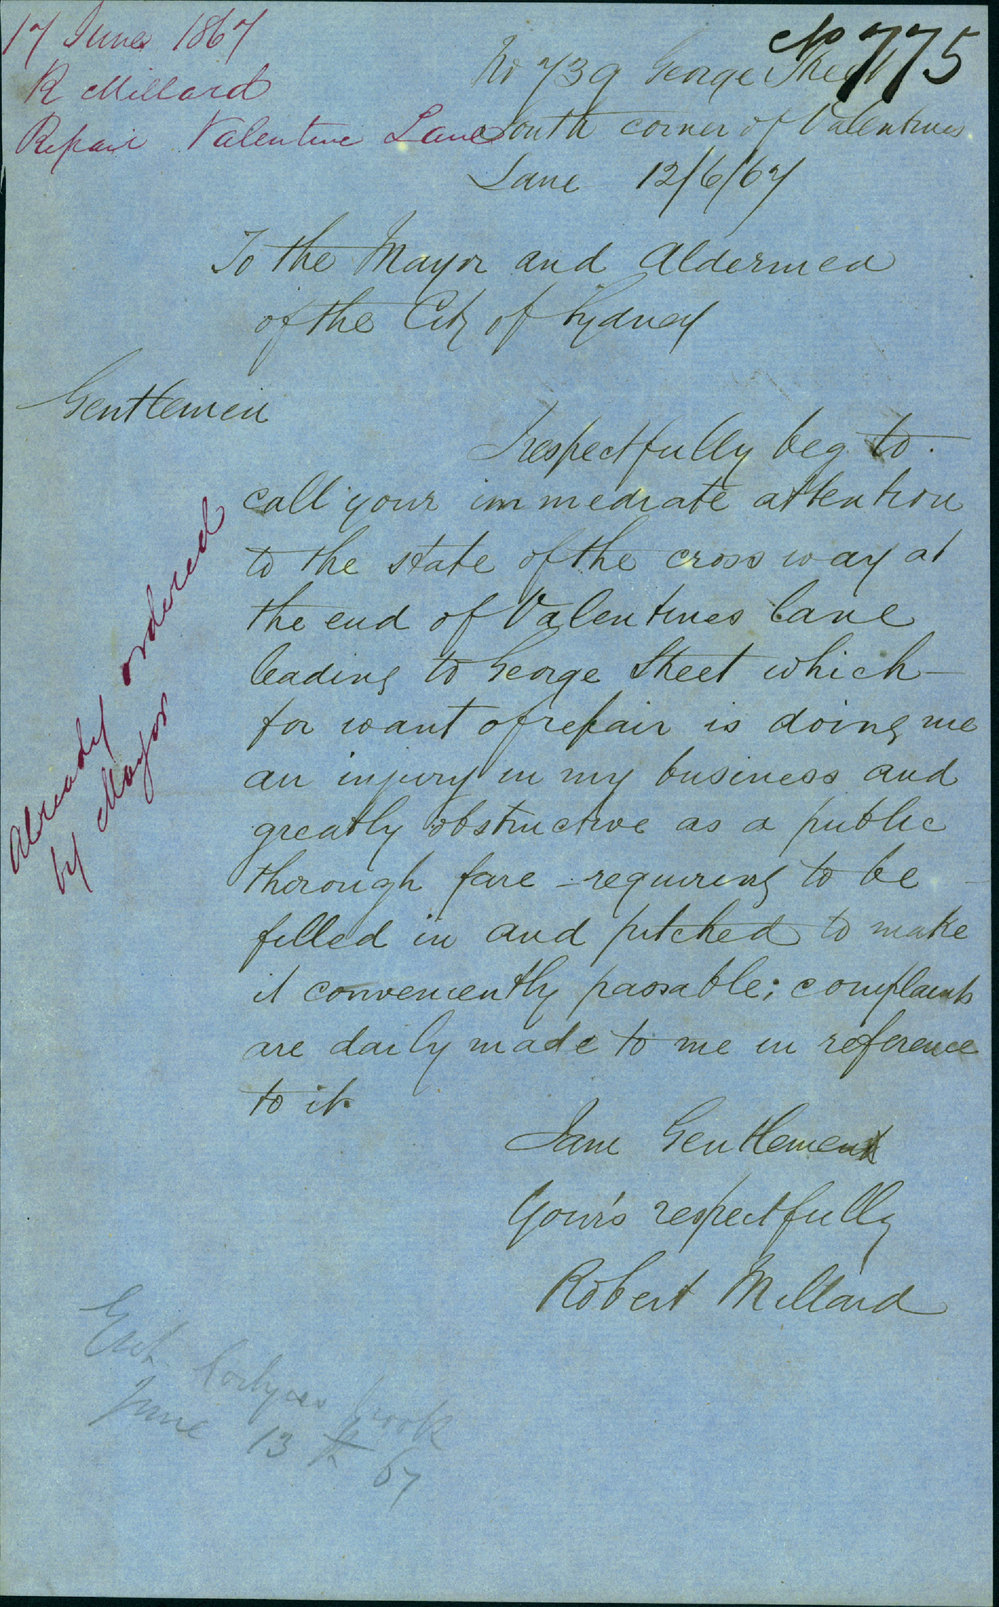 17 June 1867
R Millard
Repair Valentine Lane
No 775
No 739 George Street
South corner of Valentines
Lane 12/6/67
To the Mayor and Aldermen
of the City of Sydney
Gentlemen
I respectfully beg to
call your immediate attention
to the state of the cross way at
the end of Valentines Lane
leading to George Street which
for want of repair is doing me
an injury in my business and
greatly obstructive as a public
thorough fare - requiring to be
filled in and pitched to make
it conveniently passable; complaints
are daily made to me in reference
to it.
I am Gentlemen
Your's respectfully
Robert Millard
Already ordered
by Mayor
June 13th 67